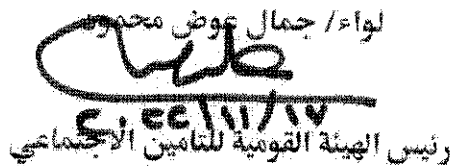 لواء/ جمال عوض محمود
٢٠٢٢/١١/١٧
رئيس الهيئة القومية للتأمين الاجتماعي